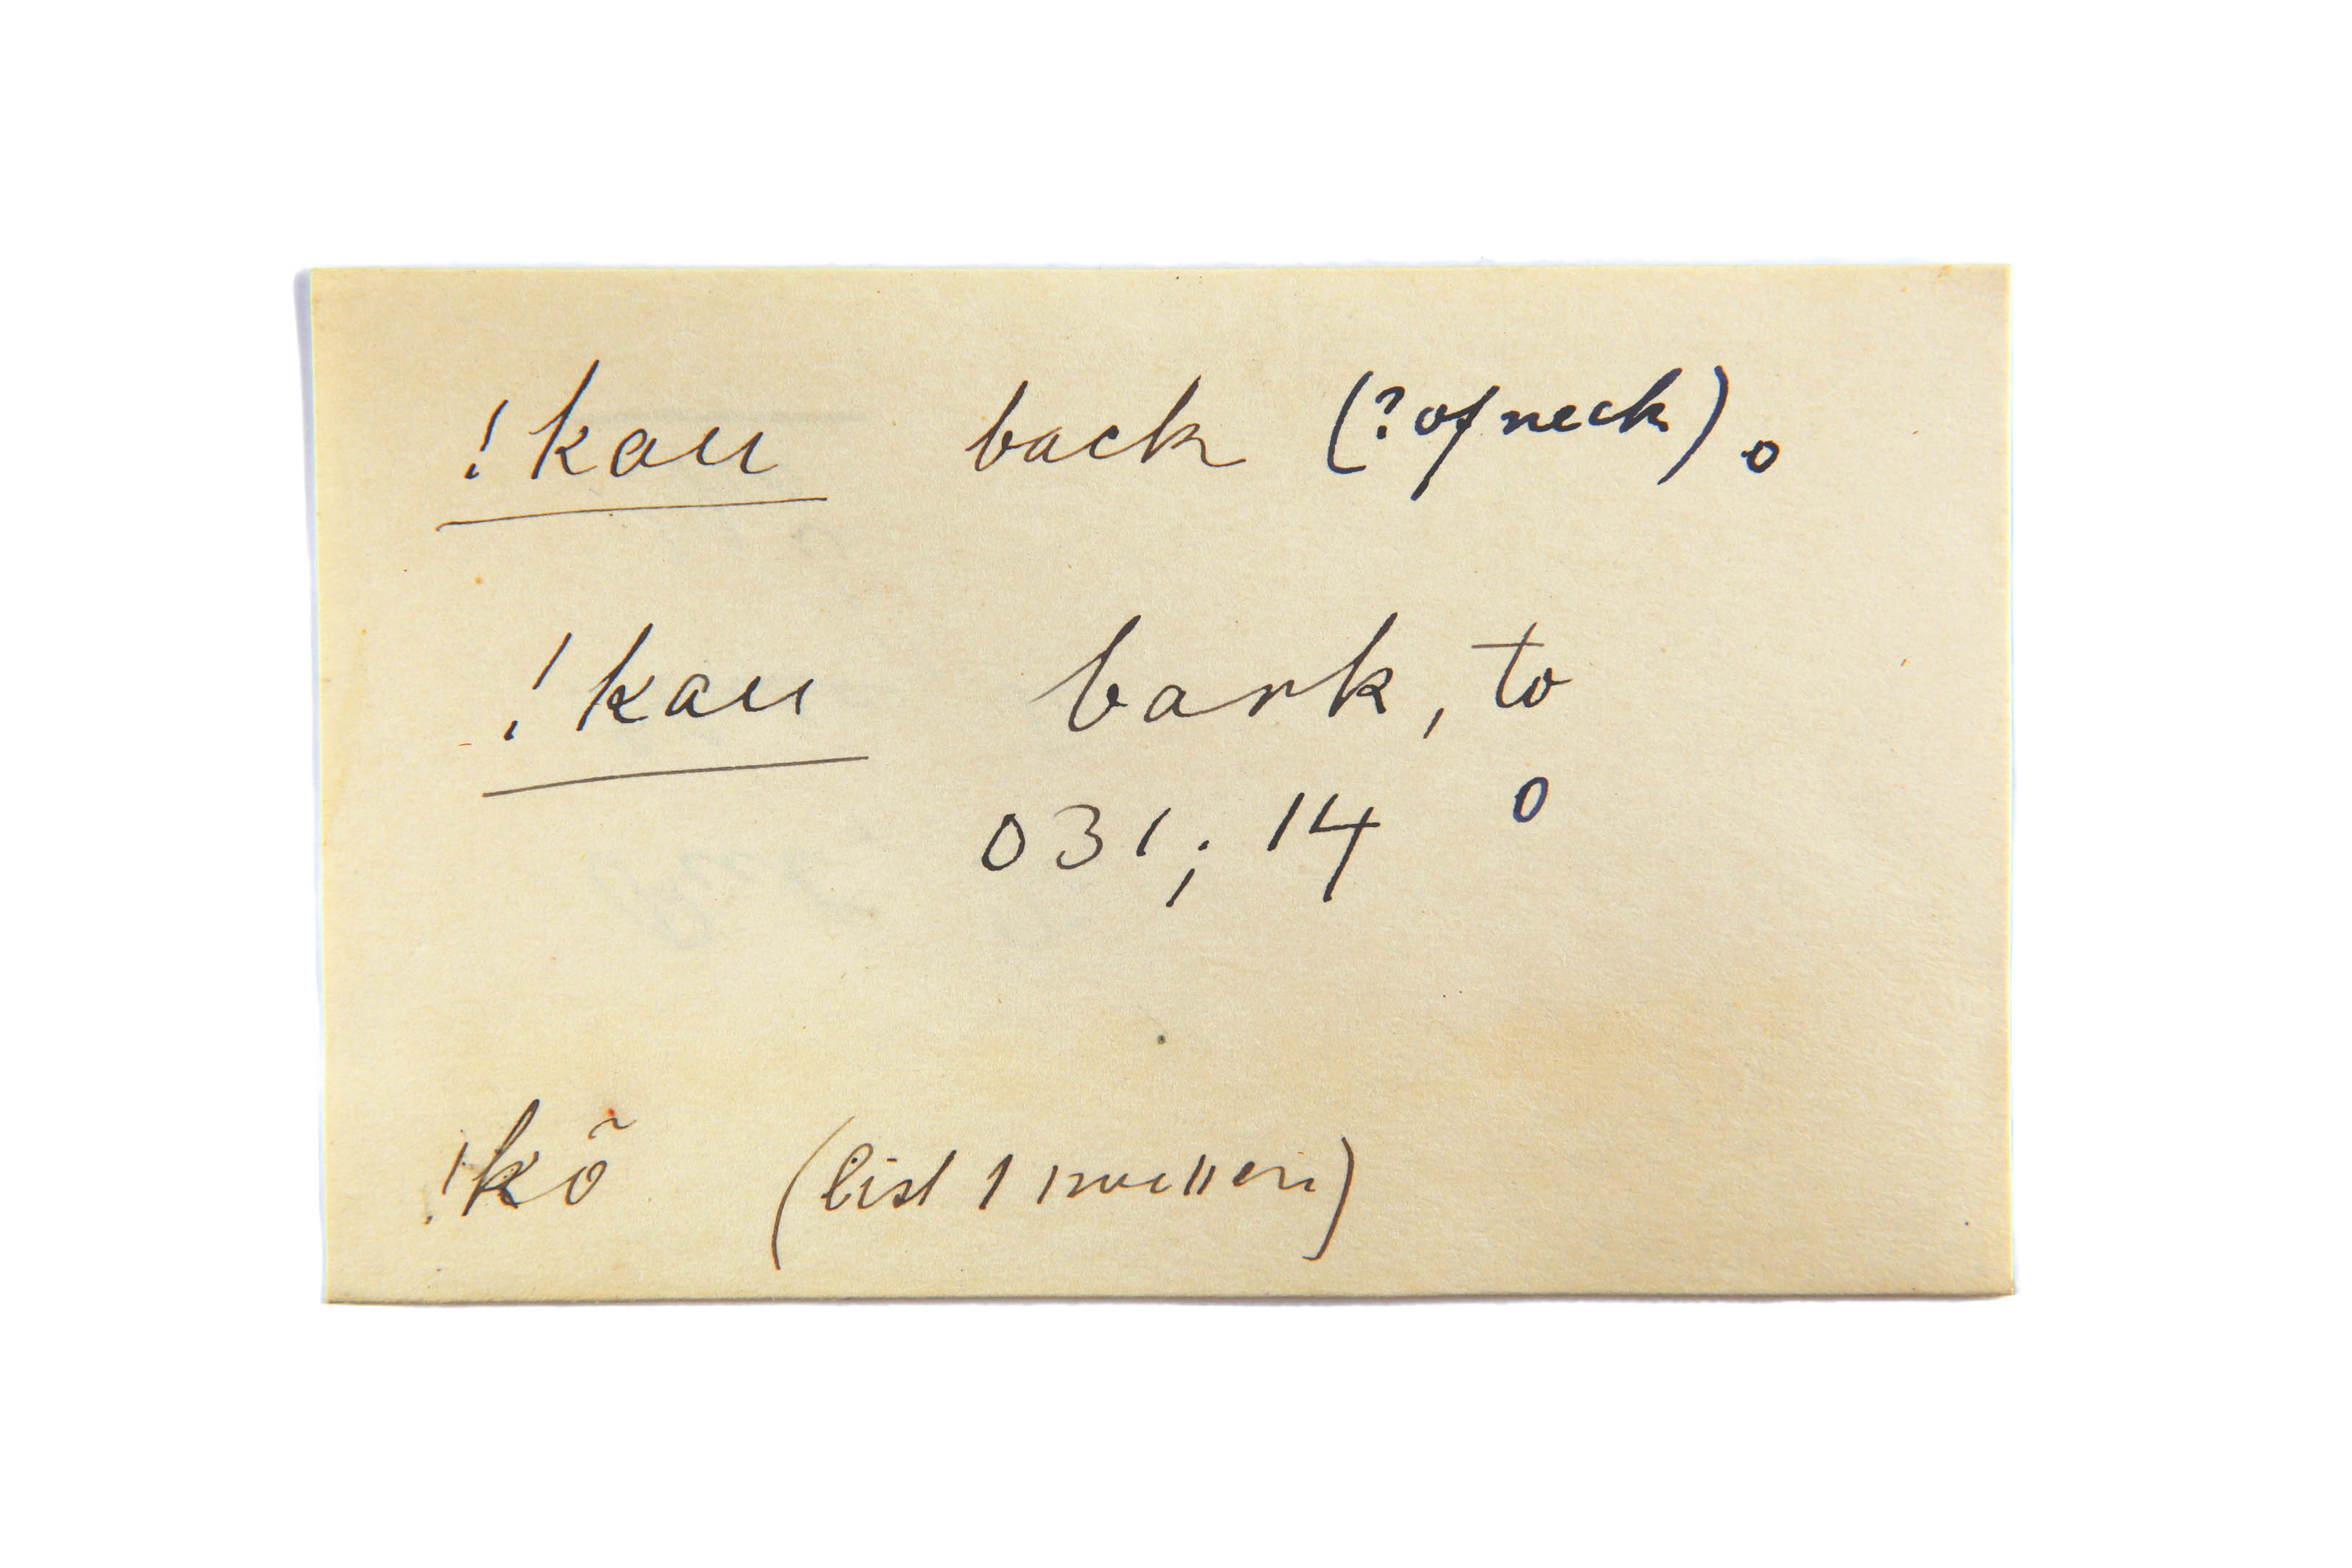 !kau back (? of neck) o
!kau bark, to
031; 14 o
!kõ (list 1